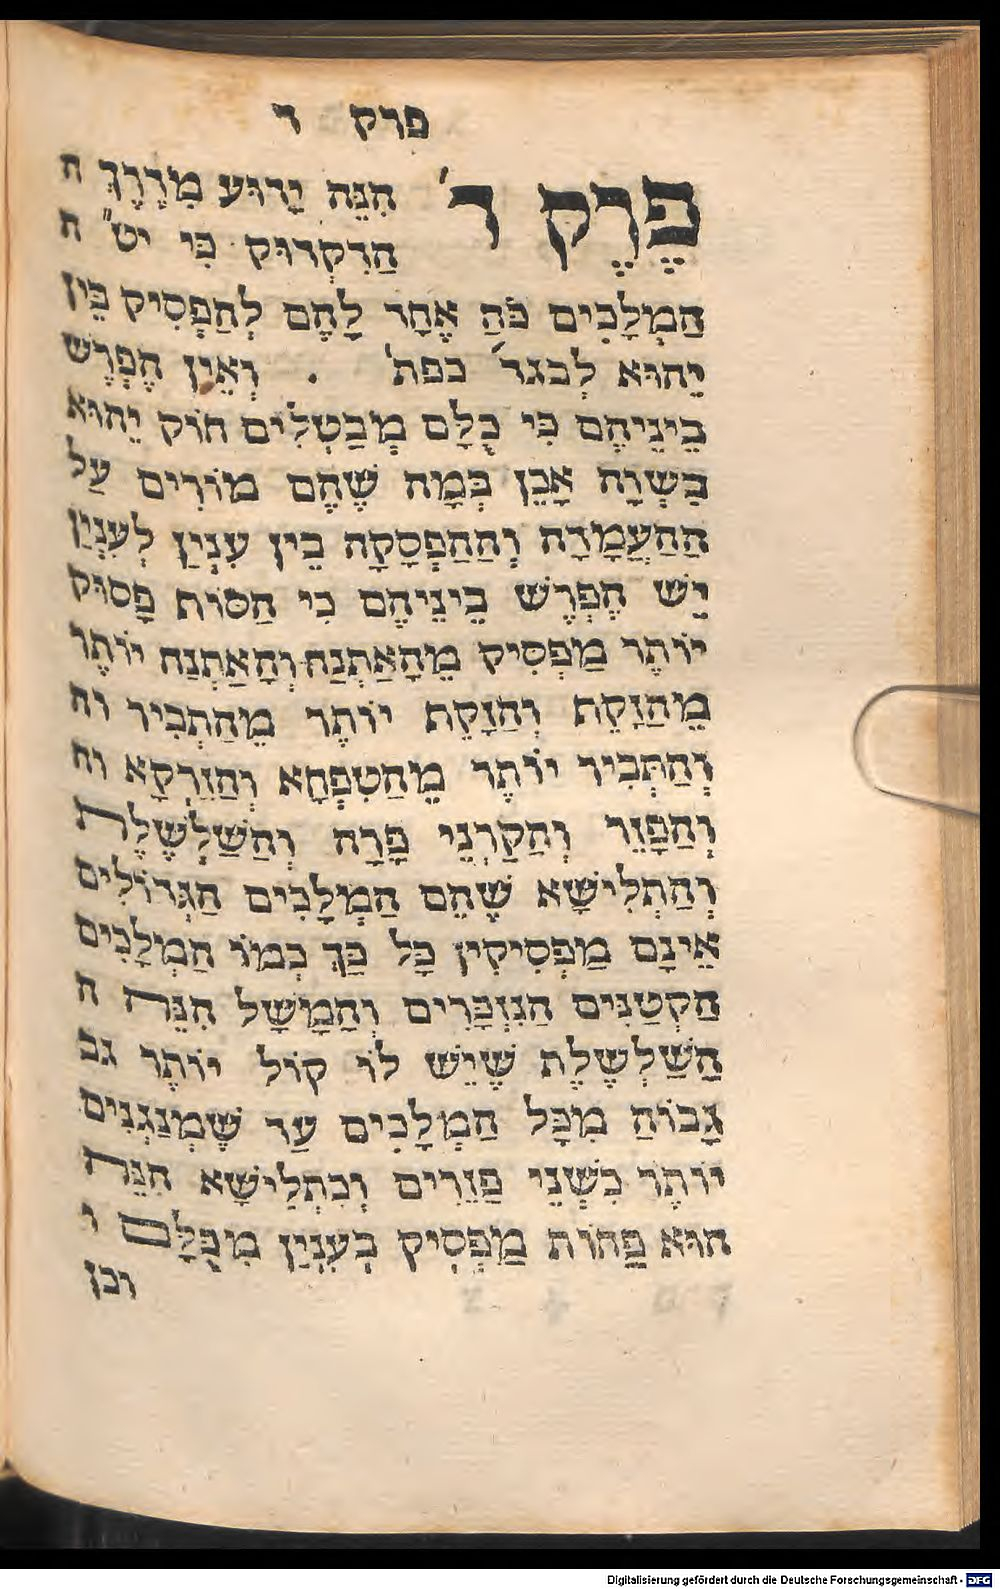 פרק ד
פֶּרֶק ד' הִנֵּה יָדוּעַ מִדֶּרֶךְ ה
הַדִּקְדּוּק כִּי יט״ ה
הַמְּלָכִים כֹּחַ אֶחָד לָהֶם לְהַפְסִיק בֵּין
יֵהוּא לְבגד׳ כפת׳ . וְאֵין הֶפְרֵשׁ
בֵּינֵיהֶם כִּי כֻּלָּם מְבַטְּלִים חוֹק יֵהוּא
בְּשָׁוֶה אָכֵן בְּמָה שֶׁהֶם מוֹרִים עַל
הַהַעֲמָדָה וְהַהַפְסָקָה בֵּין עִנְיַן לְעִנְיַן
יֵשׁ הֶפְרֵשׁ בֵּינֵיהֶם כִּי הַסּוֹף פָּסוּק
יוֹתֵר מַפְסִיק מֵהָאַתְנַח וְהָאַתְנַח יוֹתֵר
מֵהַזָּקֵף וְהַזָּקֵף יוֹתֵר מֵהַתְּבִיר וה
וְהַתְּבִיר יוֹתֵר מֵהַטִּפְחָא וְהַזַּרְקָא וה
וְהַפָּזֵר וְהַקַּרְנֵי פָרָה וְהַשַּׁלְשֶׁלֶת
וְהַתְּלִישָׁא שֶׁהֵם הַמְּלָכִים הַגְּדוֹלִים
אֵינָם מַפְסִיקִין כָּל כַּךְ כְּמוֹ הַמְּלָכִים
הַקְּטַנִּים הַנִּזְכָּרִים וְהַמָּשָׁל הִנֵּה ה
הַשַּׁלְשֶׁלֶת שֶׁיֵּשׁ לוֹ קוֹל יוֹתֵר גב
גָּבוֹהַּ מִכָּל הַמְּלָכִים עַד שֶׁמְּנַגְּנִים
יוֹתֵר כִּשְׁנֵי פַּזְרִים וְכִתְלִישָׁא הִנֵּה
הוּא פָּחוֹת מַפְסִיק בְּעִנְיַן מִכֻּלָּם ו
וכן
Digitalisierung gefördert durch die Deutsche Forschungsgemeinschaft - DFG